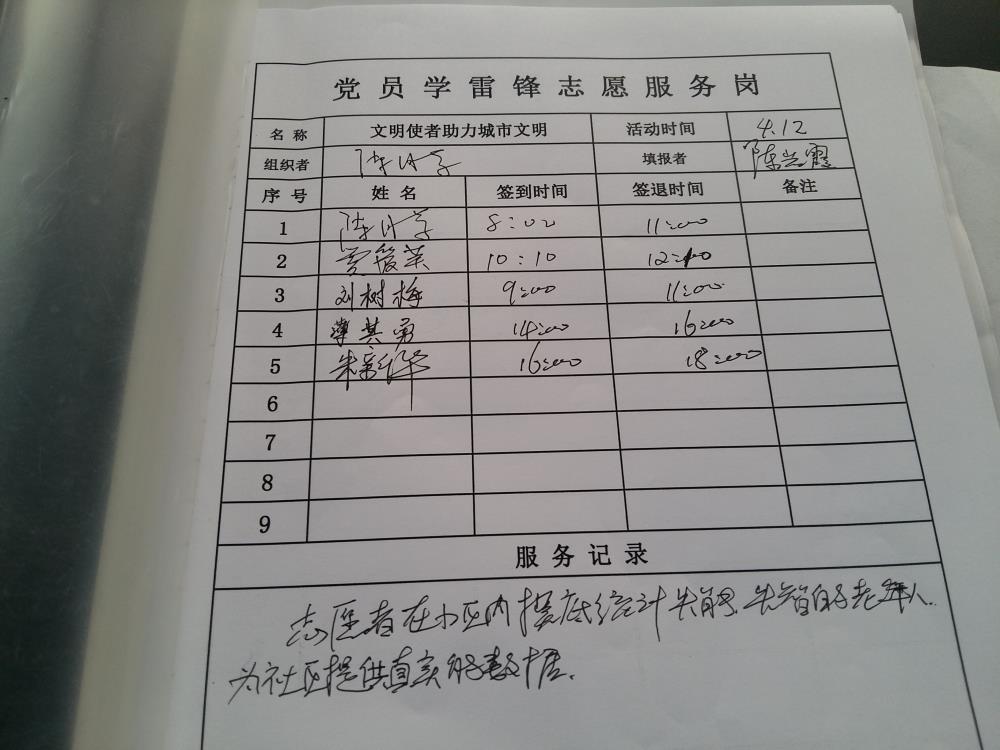 党员学雷锋志愿服务岗
名称 文明使者助力城市文明 活动时间 4.12
组织者 填报者 陈
序号 姓名 签到时间 签退时间 备注
1 8:02 11:00
2 10:10 12:10
3 刘树梅 9:00 11:00
4 其勇 14:00 16:00
5 朱 16:00 18:00
6
7
8
9
服务记录
志愿者在小区内摸底统计失能、失智的老年人.
为社区提供真实的数据.